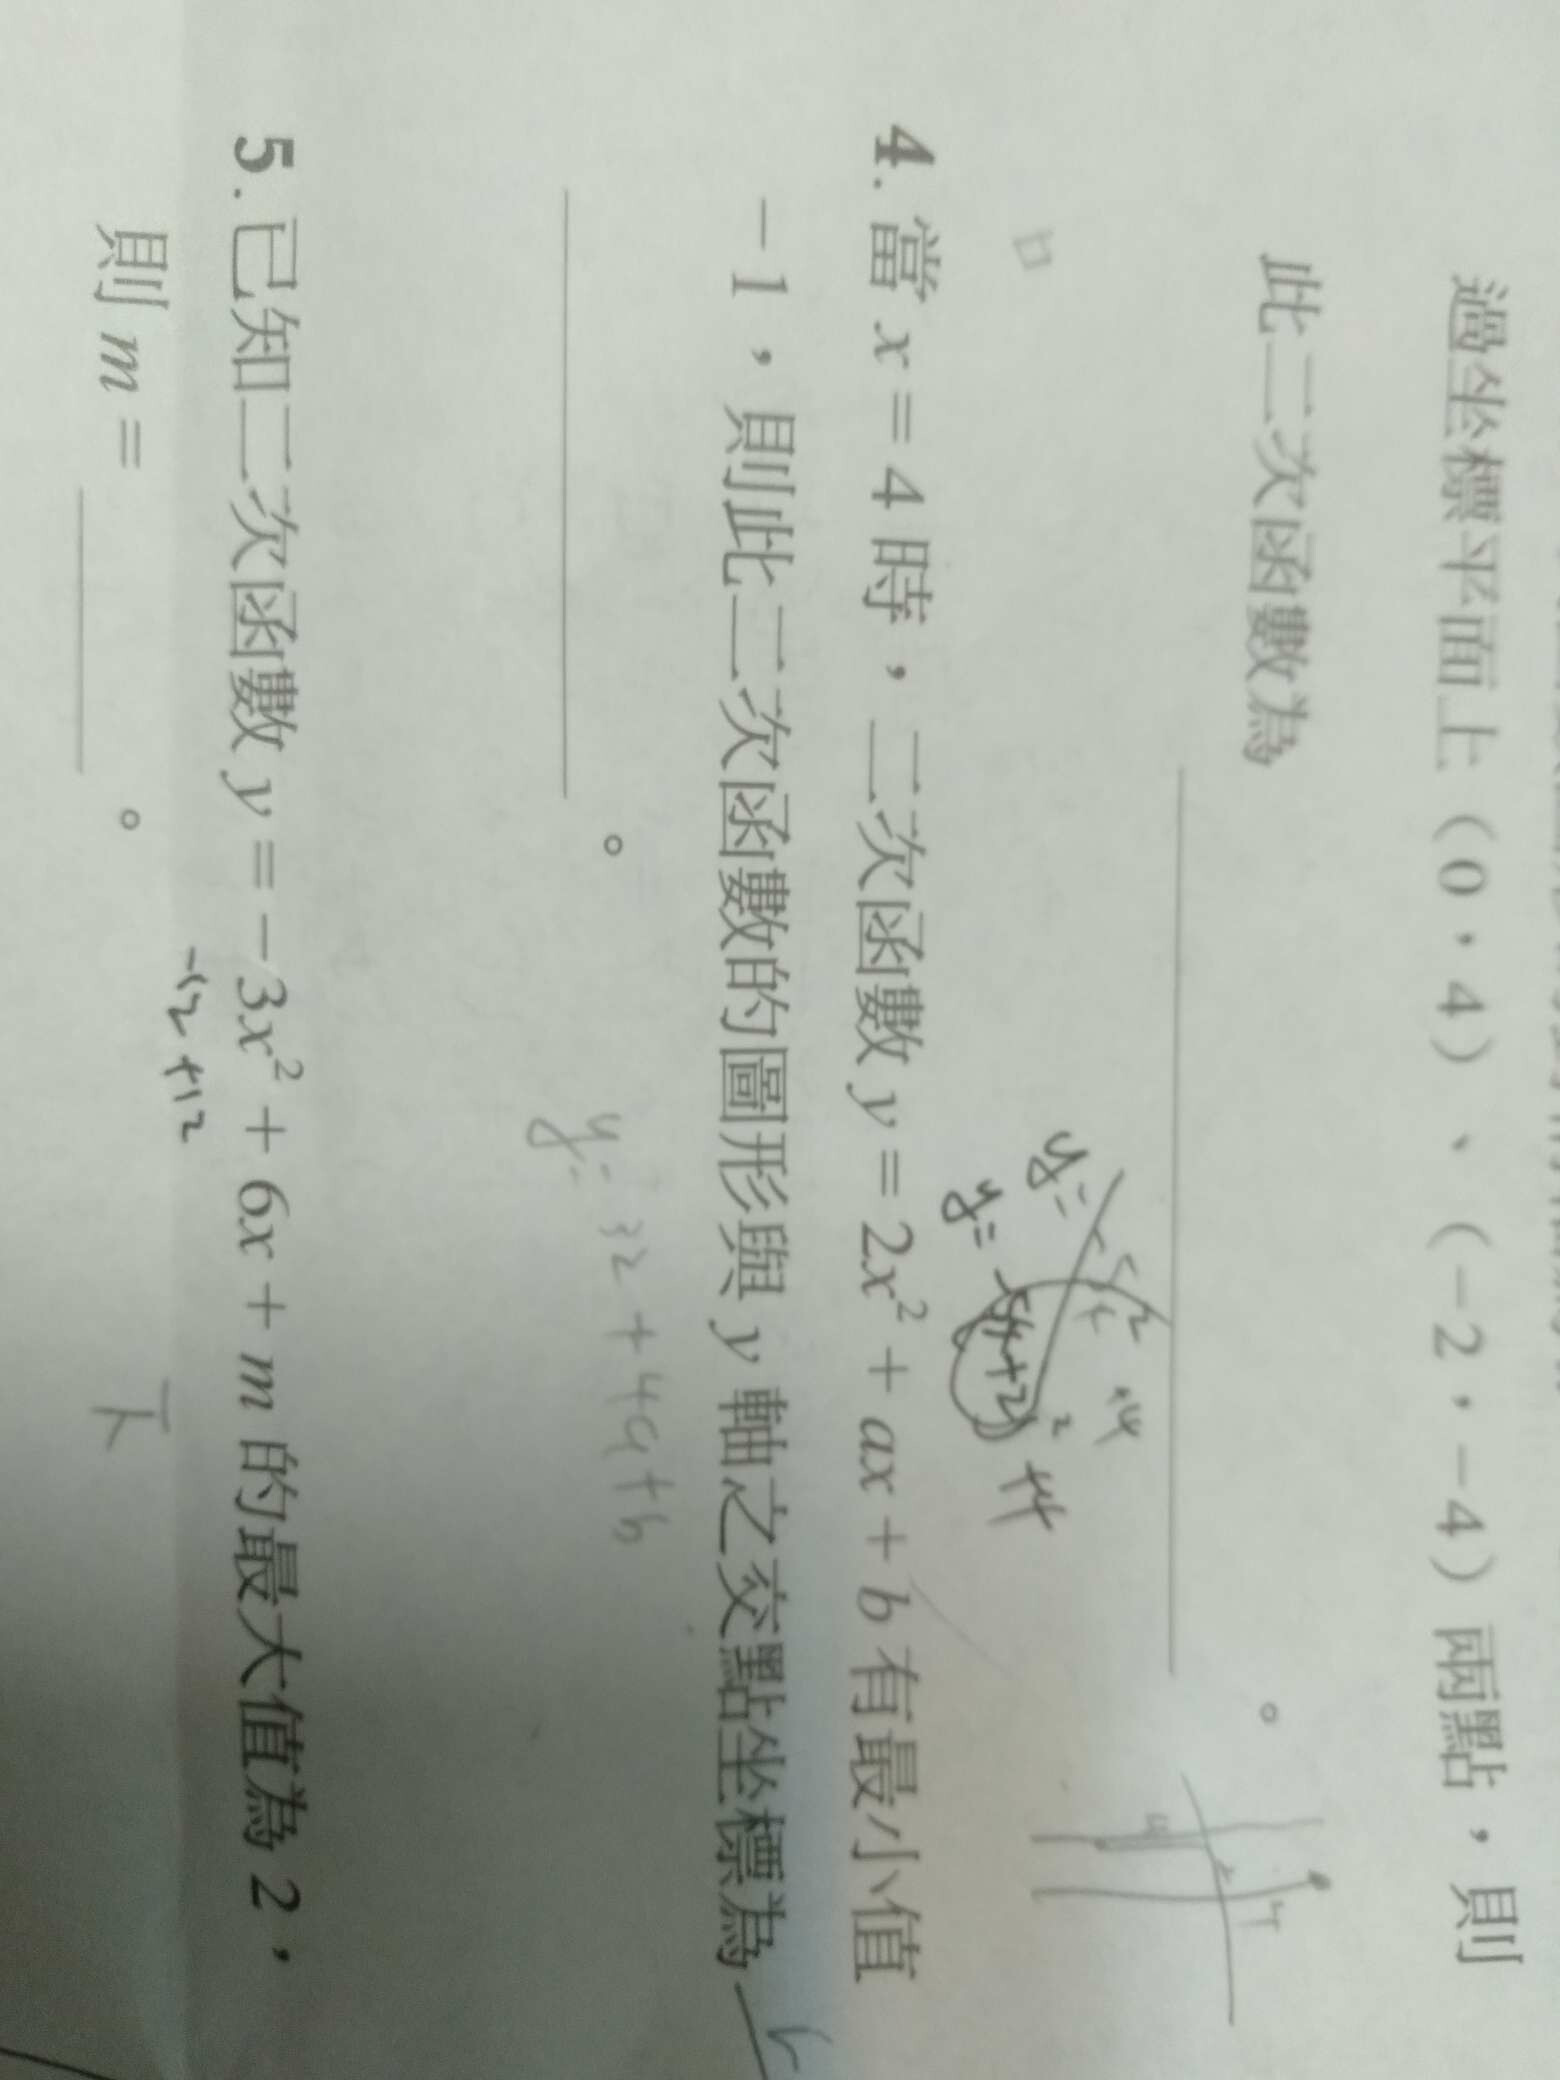 過坐標平面上(0,4)、(-2,-4)兩點,則
此二次函數為
4.當 x = 4 時,二次函數 y = 2x² + ax + b 有最小值
-1,則此二次函數的圖形與 y 軸之交點坐標為
。
y= 32+4a+b
5.已知二次函數 y = -3x² + 6x + m 的最大值為 2,
則 m = 。